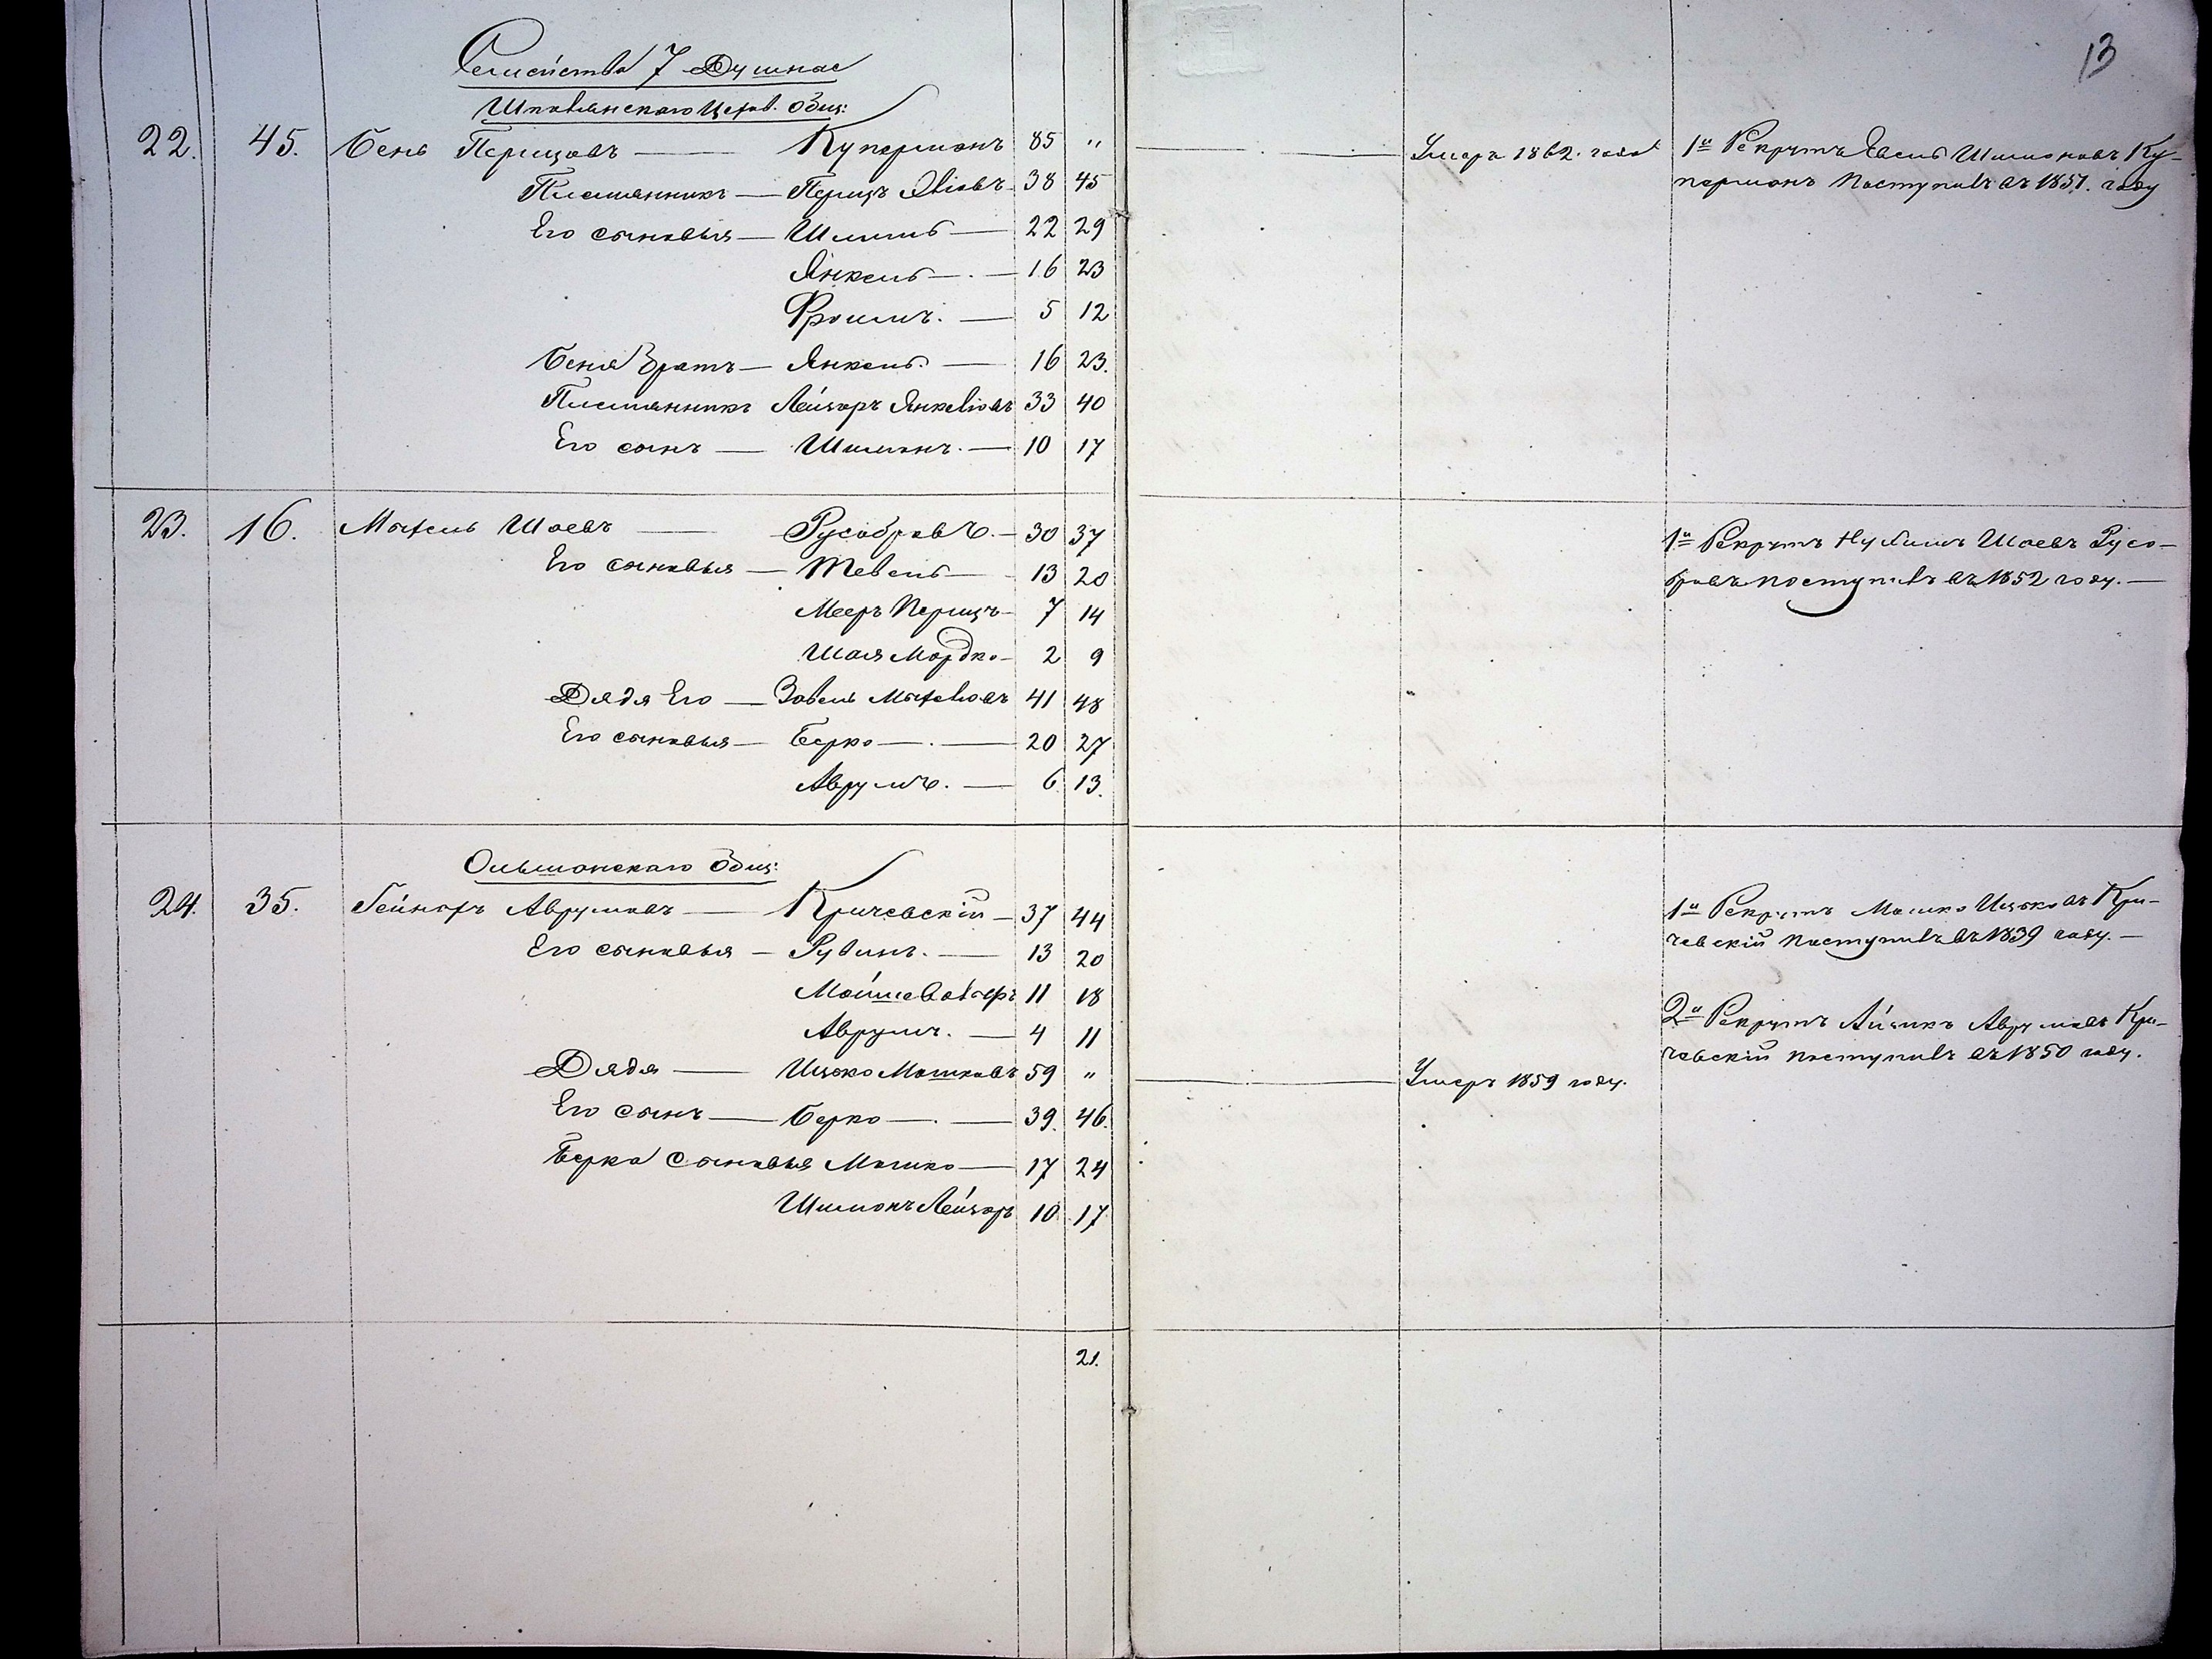 13
Семейства 7 Душнае
Шполянскаго Церов. Общ:
22. 45. Бень Перцовъ — Куперманъ 85 " — Умеръ 1862. года 1й Рекрутъ Евель Шимоновъ Ку-
Племянникъ — Перецъ 38 45 перманъ Поступилъ въ 1857. году
Его сыновья — Шмиль — 22 29
Янкель — 16 23
Фроимъ. — 5 12
Беня Братъ — Янкель. — 16 23.
Племянникъ Лейзоръ Янкелiовъ 33 40
Его сынъ — Шимонъ. — 10 17
23. 16. Мотель Шаевъ — Русобровъ. — 30 37 1й Рекрутъ Нухимъ Шаевъ Русо-
Его сыновья — Тевель — 13 20 бровъ поступилъ въ 1852 году. —
Мееръ Перецъ — 7 14
Шая Мордко — 2 9
Дядя Его — Завель 41 48
Его сыновья — Берко — 20 27
Аврумъ. — 6 13.
Ольшанскаго Общ:
24. 35. Гейноръ Аврумовъ — Кричевскій — 37 44 1й Рекрутъ Мошко Ицковъ Кри-
Его сыновья — Рувинъ. — 13 20 чевскій поступилъ въ 1839 году. —
Мойше 11 18
Аврумъ. — 4 11 2й Рекрутъ Айзикъ Аврумовъ Кри-
Дядя — Ицько Мошковъ 59 " — Умеръ 1859 году. чевскій поступилъ въ 1850 году.
Его сынъ — Берко — 39. 46.
Берка сыновья Мошко — 17 24
Шимонъ Лейзоръ 10 17
21.